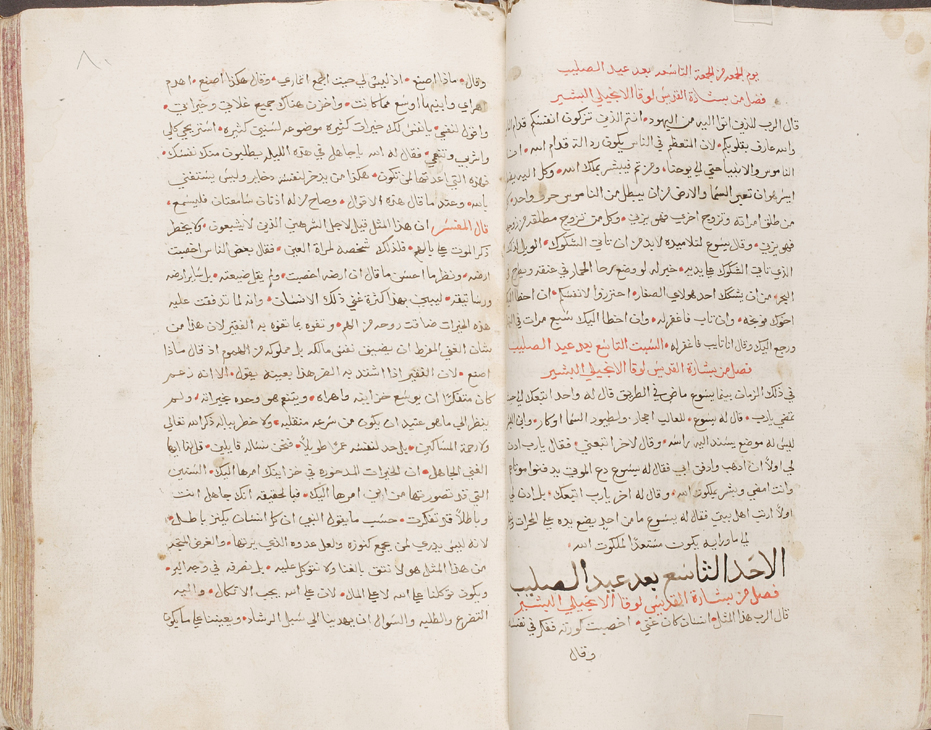 يوم الجمعه من الجمعة التاسعه بعد عيد الصليب
فصل من بشارة القديس لوقا الانجيلي البشير
قال الرب للذين اتوا اليه من اليهود • انتم الذين تزكون انفسكم قدام
والله عارف بقلوبكم • لان المتعظم في الناس يكون ردالة قدام الله •
الناموس والانبيا حتى الى يوحنا • ومن ثم فيبشر بملكوت الله • وكل
ايسر هوان تعبر السما والارض من ان يبطل من الناموس حرف واحد •
من طلق امراته وتزوج اخرى فهو يزني • وكل من تزوج مطلقه من زوجها
فهو يزني • وقال يسوع لتلاميذه لابد من ان تاتي الشكوك • الويل
الذي تاتي الشكوك على يديه • خير له لو وضع رحا الحمار في عنقه
البحر • من ان يشكك احد هولاي الصغار • احترزوا لانفسكم • ان اخطا
اخوك فوبخه • وان تاب فاغفر له • وان اخطا اليك سبع مرات في
ورجع اليك وقال انا تايب فاغفر له • السبت التاسع بعد عيد الصليب
فصل من بشارة القديس لوقا الانجيلي البشير
في ذلك الزمان بينما يسوع ماض في الطريق قال له واحد اتبعك الى
تمضي يارب • قال له يسوع • للثعالب اجحار • ولطيور السما اوكار •
ليس له موضع يسند اليه راسه • وقال لاخر اتبعني • فقال يارب
لي اولا ان اذهب وادفن ابي فقال له يسوع دع الموتى يدفنوا موتاهم
وانت امضي وبشر بملكوت الله • وقال له اخر يارب اتبعك • بل اذن لي
اولا ارتب اهل بيتي فقال له يسوع ما من احد يضع يده على المحراث
الى ما ورايه يكون مستعدا لملكوت الله •
الاحد التاسع بعد عيد الصليب
فصل من بشارة القديس لوقا الانجيلي البشير
قال الرب هذا المثل • انسان كان غني • اخصبت كورته ففكر في نفسه
وقال
٨٠
وقال • ماذا اصنع • اذ ليس لي حيث اجمع اثماري • وقال هكذا اصنع • اهدم
هراي وابنيها اوسع مما كانت • واخزن هناك جميع غلاتي وخيراتي •
واقول لنفسي • يا نفس لك خيرات كثيره موضوعه لسنين كثيره • استريحي كلي
واشربي وتنعمي • فقال له الله يا جاهل في هذه الليله يطلبون منك نفسك •
فهذه التي اعددتها لمن تكون • هكذا من يدخر لنفسه دخاير وليس يستغني
بالله • وعندما قال هذه الاقوال • وصاح من له اذنان سامعتان فليسمع •
قال المفسر ان هذا المثل قيل لاجل الشرهين الذين لا يشبعون • ولا يخطر
ذكر الموت على بالهم • فلذلك شخصه لمراة العين • فقال بعض الناس اخصبت
ارضه • ونظر ما احسن ما قال ان ارضه اخصبت • ولم يقل ضيعته • بل ساير ارضه
ورساتيقه • ليبين بهذا كثرة غنى ذلك الانسان • وانه لما تدفقت عليه
هذه الخيرات ضاقت روحه من الهم • وتفوه بما تفوه به الفقير لان هذا من
شان الغنى المفرط ان يضيق نفس مالكه بل مملوكه من الهموم اذ قال ماذا
اصنع • لان الفقير اذا اشتد به الضر هذا بعينه يقول • الا انه زعم
كان متفكرا ان يوسع خزاينه واهراه • ويتنعم هو وحده بخيراته • ولم
ينظر الى ما هو عتيد ان يكون من سرعه منقلبه • ولا خطر بباله ذكر الله تعالى
ولا رحمة المساكين • بل حد لنفسه عمرا طويلا • فنحن نساله قايلين • قل لنا ايها
الغني الجاهل • ان الخيرات المدخوره في خزاينك امرها اليك • السنين
التي قد تصورتها من اين امرها اليك • فبالحقيقه انك جاهل انت
وباطلا قد تفكرت • حسب ما يقول النبي ان كل انسان يكنز باطلا •
لانه ليس يدري لمن يجمع كنوزه ولعل عدوه الذي يرثها • والغرض
من هذا المثل هو لا نثق بالغنا ولا نتوكل عليه • بل نصرفه في وجه البر •
ويكون توكلنا على الله لا على المال • لان على الله يجب الاتكال • واليه
التضرع والطلبه والسوال ان يهدينا الى سبل الرشاد • ويعيننا على ما يكون